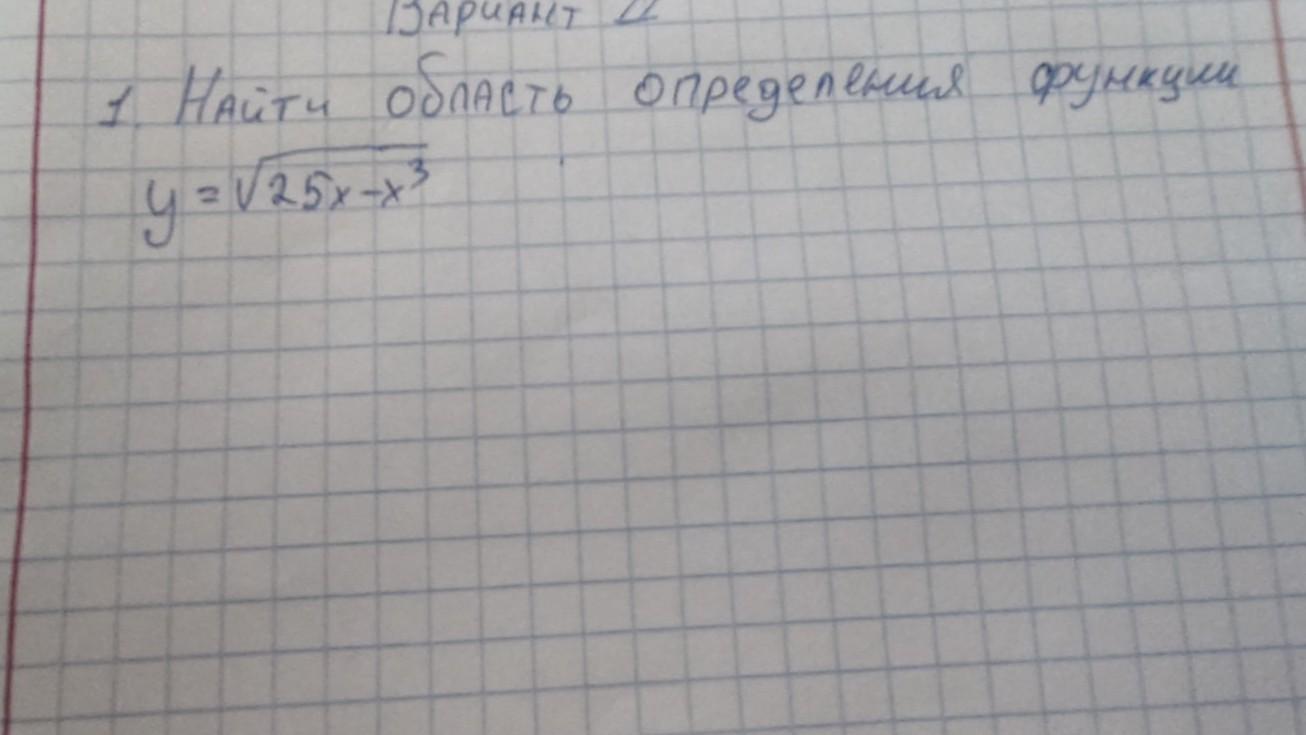 Вариант II
1. Найти область определения функции
y = √25x-x³